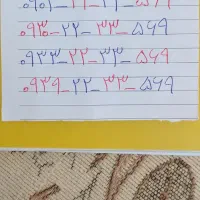 ۰۹۳۰_۲۲_۳۳_۵۶۹
۰۹۳۳_۲۲_۳۳_۵۶۹
۰۹۳۹_۲۲_۳۳_۵۶۹